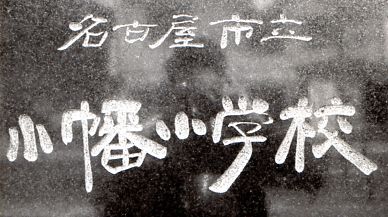 名古屋市立
小幡小学校